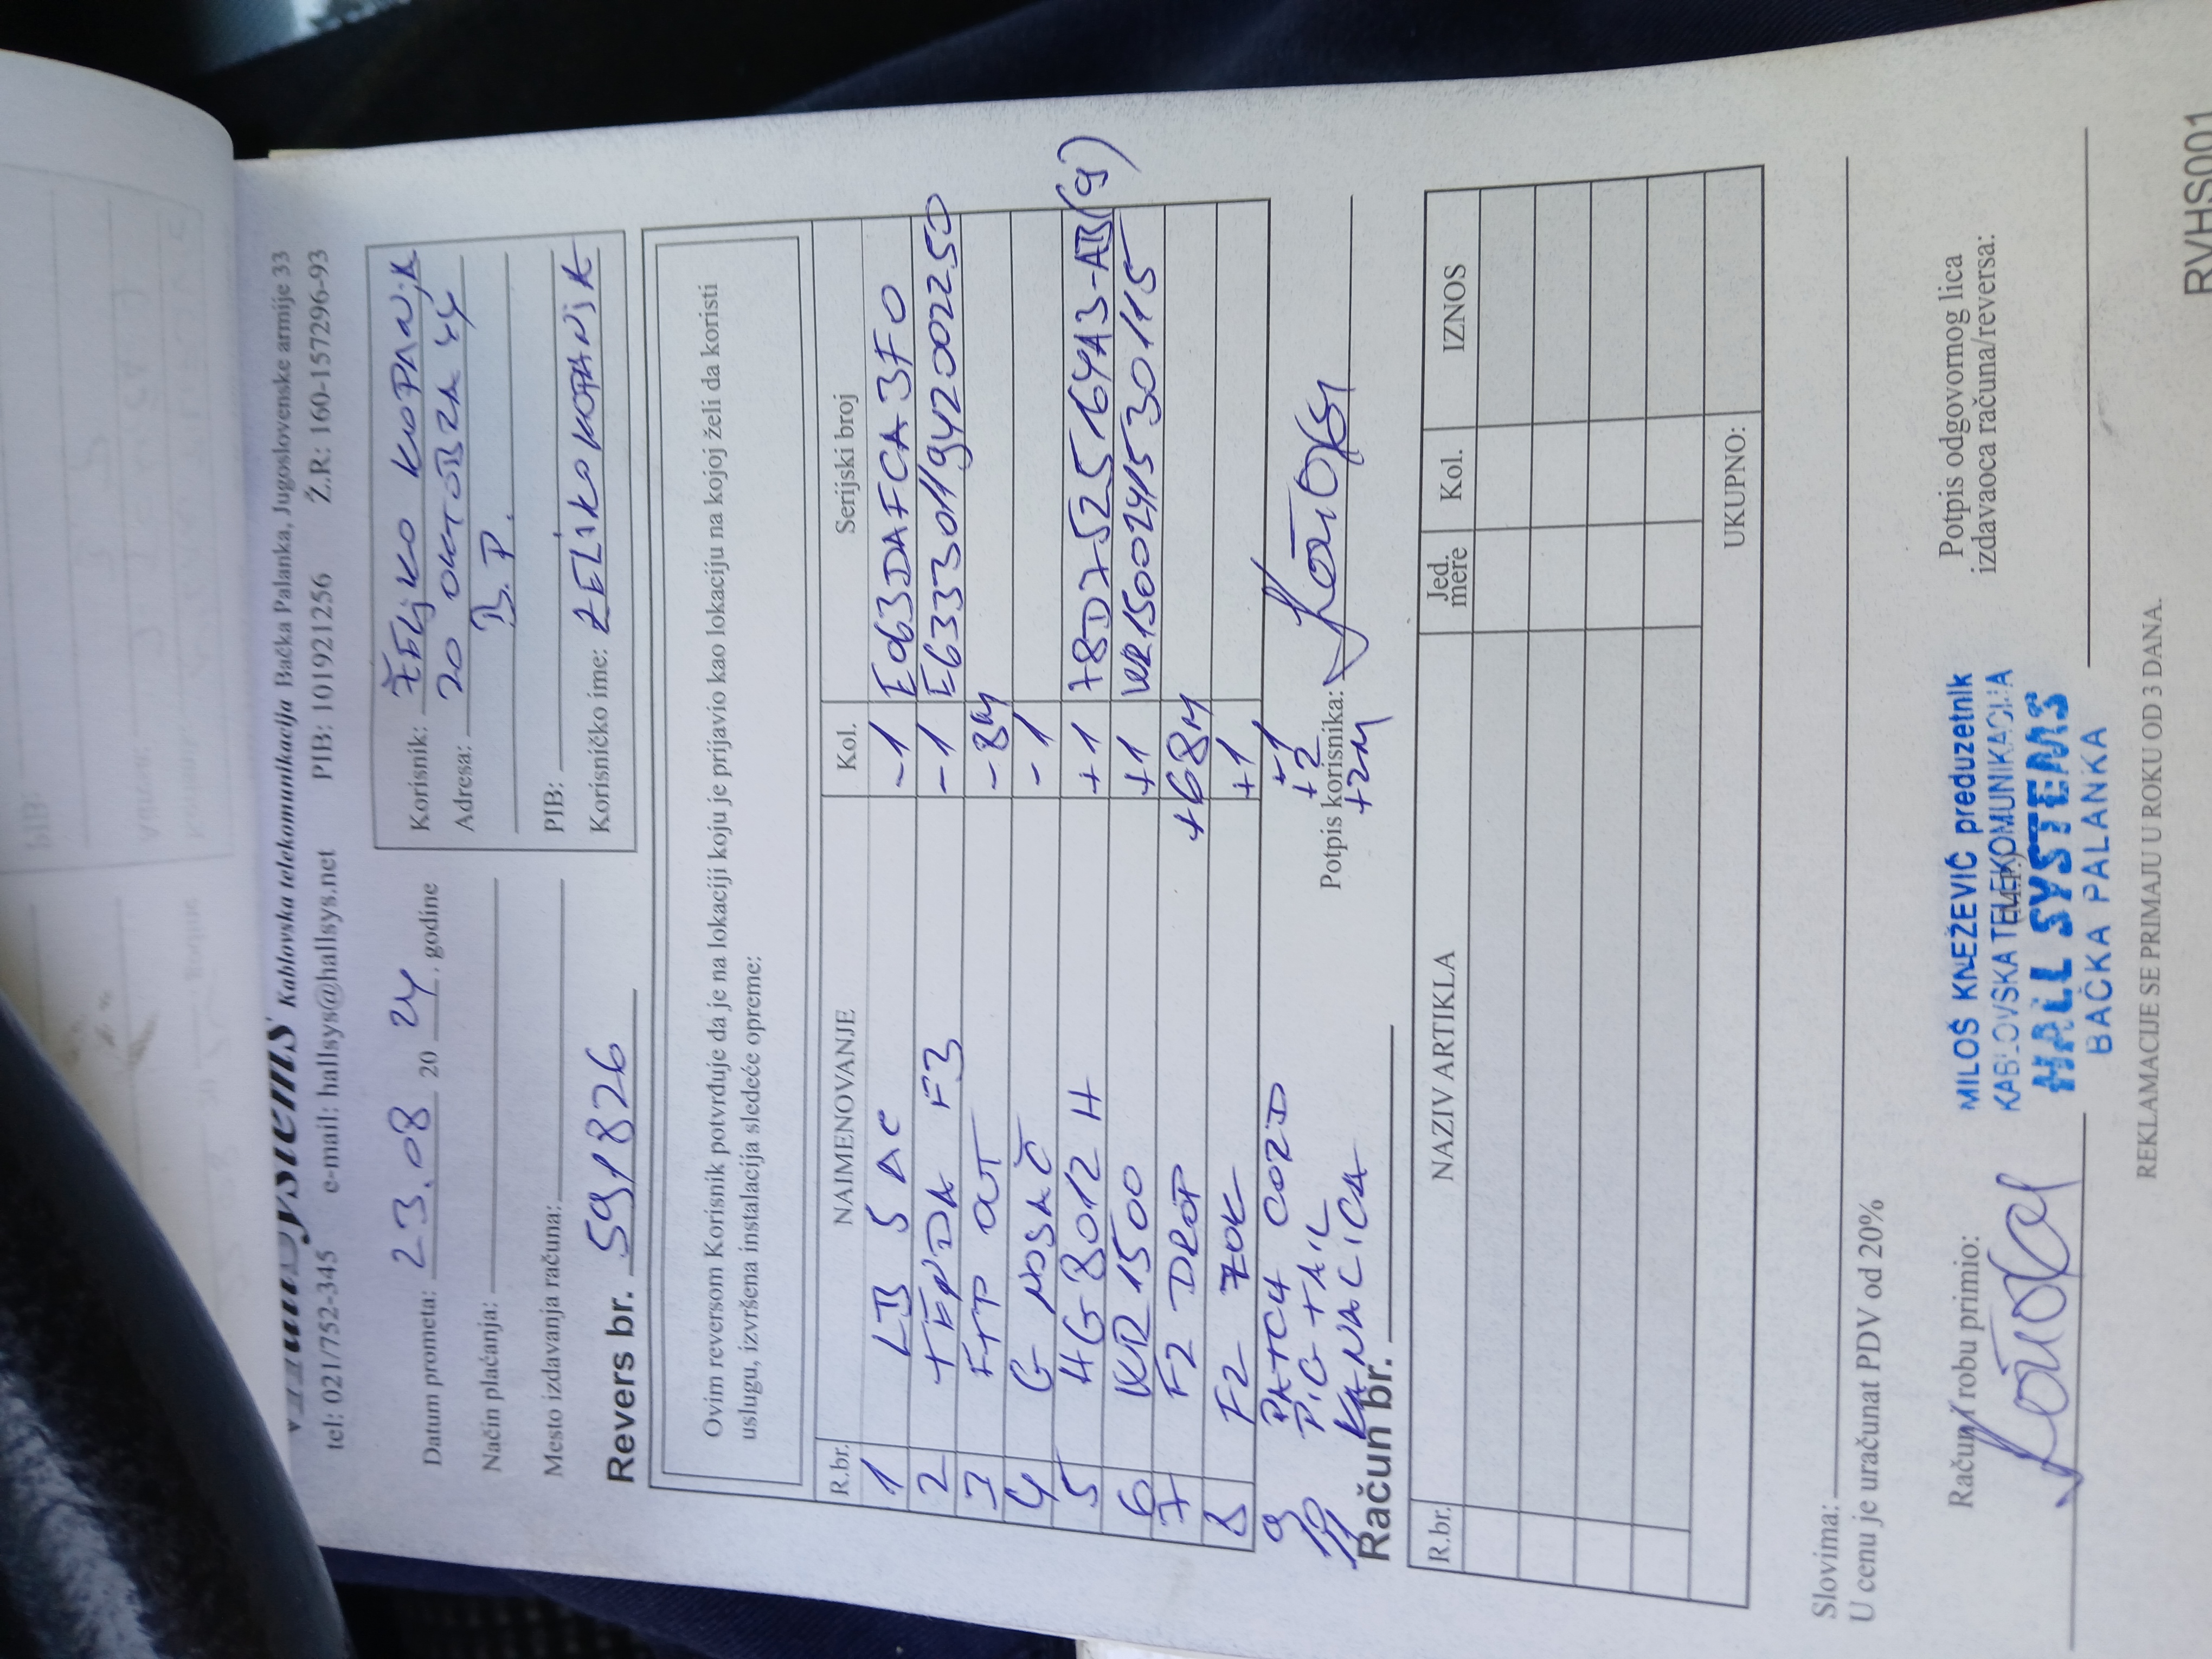 Systems Kablovska telekomunikacija Bačka Palanka, Jugoslovenske armije 33
tel: 021/752-345 e-mail: hallsys@hallsys.net PIB: 101921256 Ž.R.: 160-157296-93
Datum prometa: 23.08 20 24. godine
Način plaćanja:
Mesto izdavanja računa:
Korisnik: ŽELJKO KOPANJA
Adresa: 20 OKTOBRA 44
B.P.
PIB:
Korisničko ime: ZELJKOKOPANJA
Revers br. 591826
Ovim reversom Korisnik potvrđuje da je na lokaciji koju je prijavio kao lokaciju na kojoj želi da koristi
uslugu, izvršena instalacija sledeće opreme:
R.br. NAIMENOVANJE Kol. Serijski broj
1 LB 5 AC -1 E063DAFCA3F0
2 TENDA F3 -1 E6333011942002250
3 FTP OUT -8M
4 G NOSAČ -1
5 HG8012H +1 78D7525164A3-AB(9)
6 WR1500 +1 WR1500241530115
7 F2 DROP +68M
8 F2 ZOK +1
9 PATCH CORD +1
10 PIGTAIL +2
11 KANALICA +2M
Potpis korisnika:
Račun br.
R.br. NAZIV ARTIKLA Jed. mere Kol. IZNOS
UKUPNO:
Slovima:
U cenu je uračunat PDV od 20%
Račun/robu primio:
Potpis odgovornog lica
izdavaoca računa/reversa:
MILOŠ KNEŽEVIĆ preduzetnik
KABLOVSKA TELEKOMUNIKACIJA
HALL SYSTEMS
BAČKA PALANKA
REKLAMACIJE SE PRIMAJU U ROKU OD 3 DANA.
RVHS001